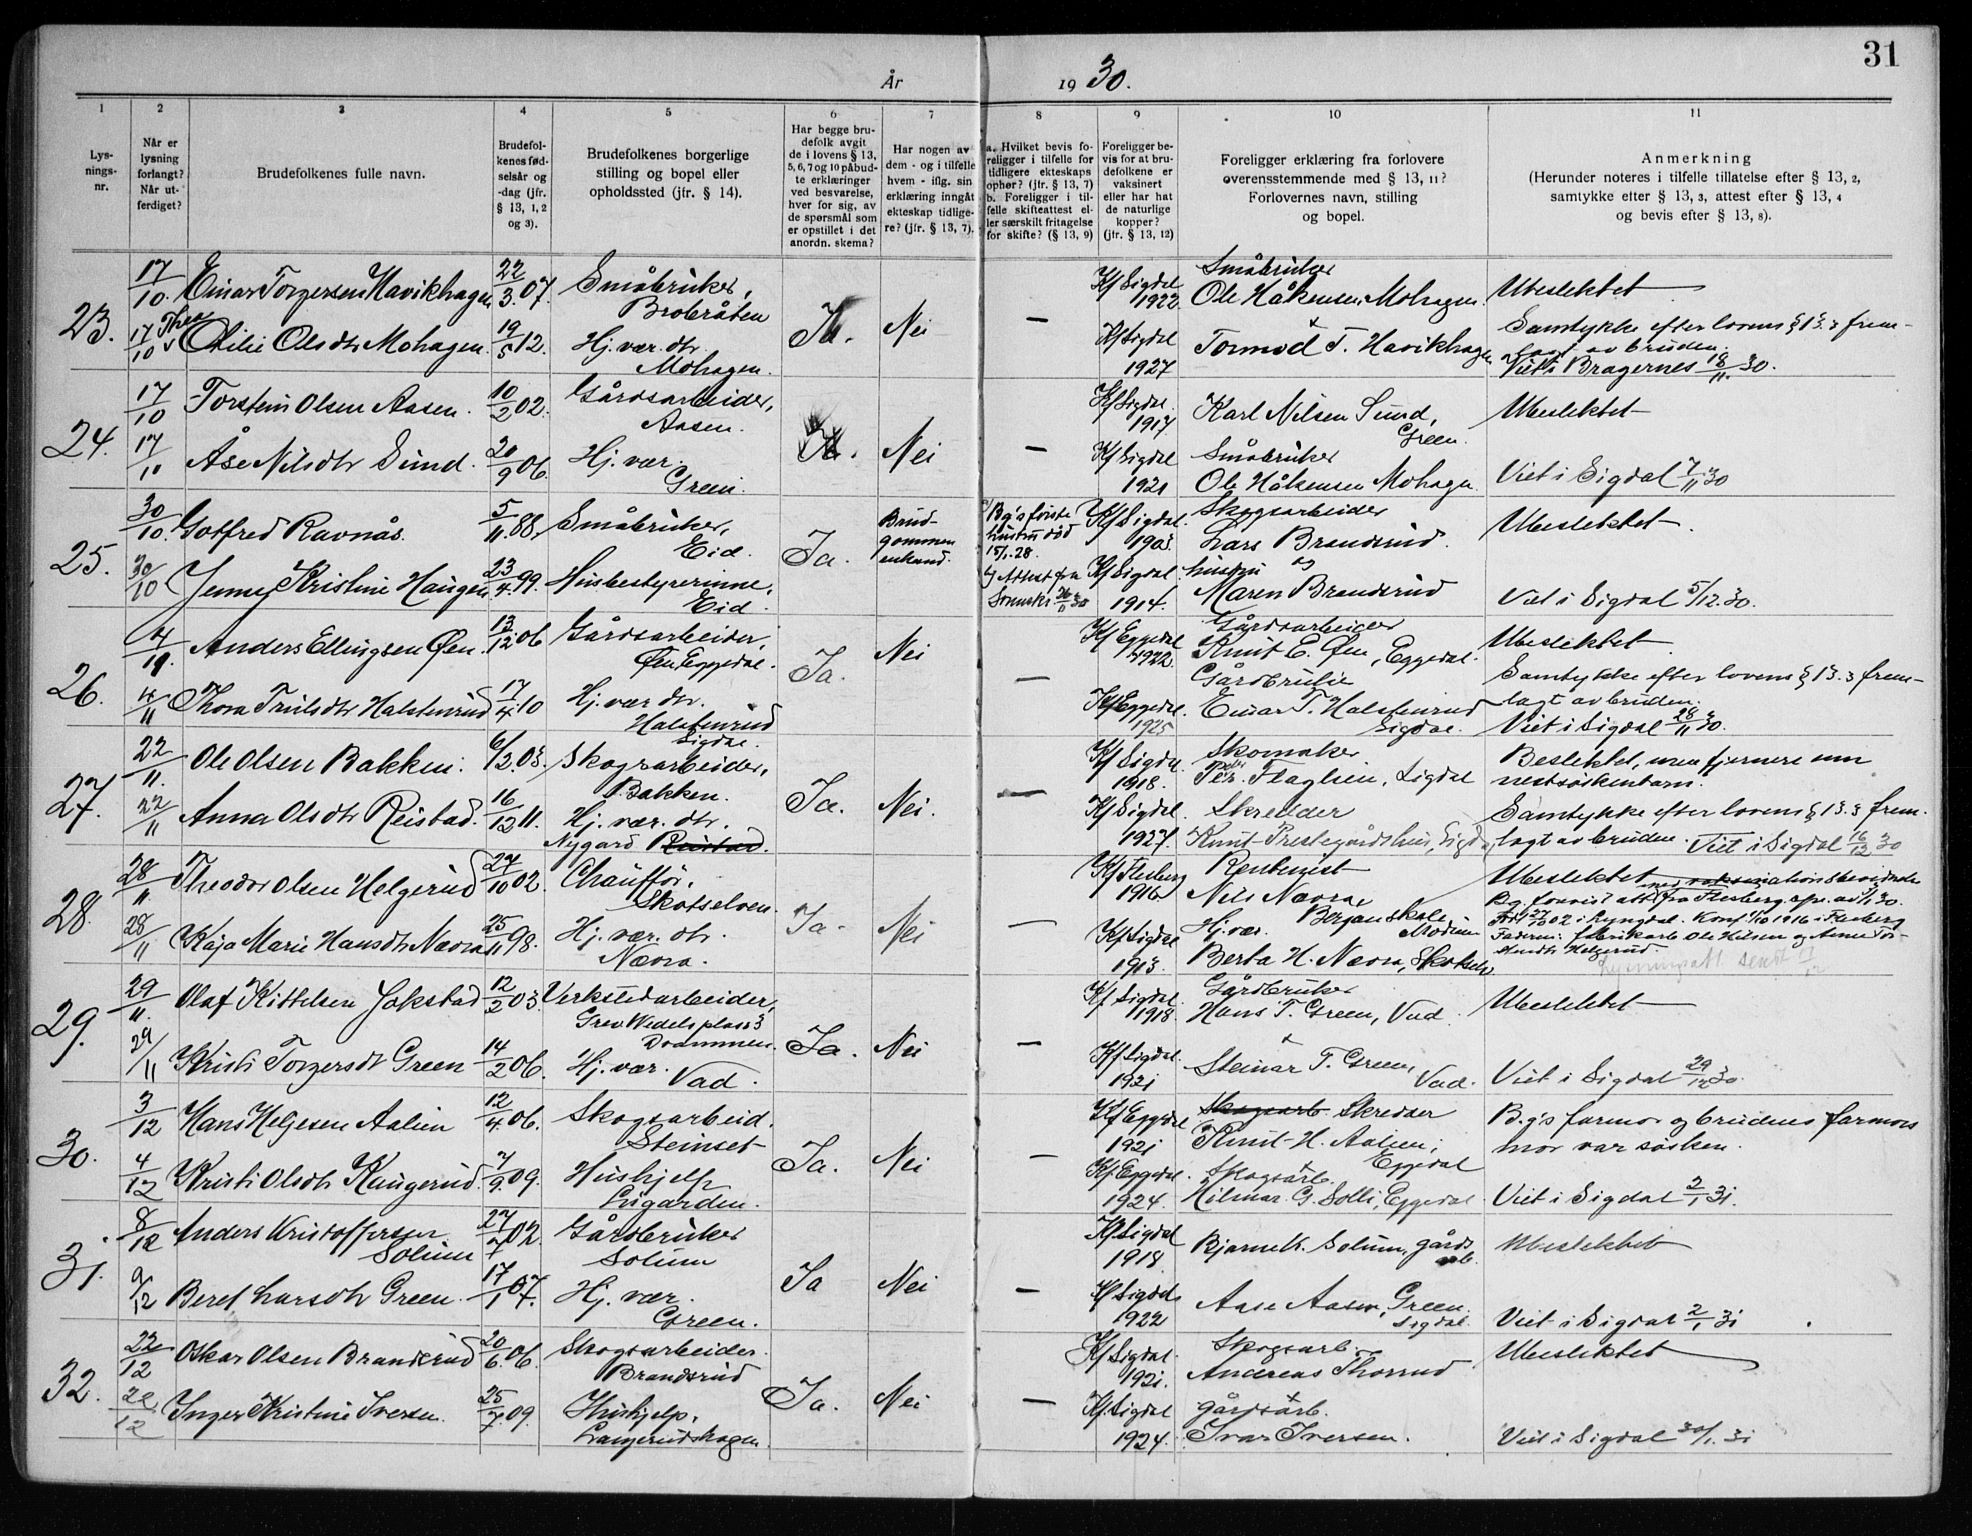 31
År 1930.
1 2 3 4 5 6 7 8 9 10 11
Lys-
nings-
nr.
Når er
lysning
forlangt?
Når ut-
ferdiget?
Brudefolkenes fulle navn.
Brudefol-
kenes fød-
selsår og
-dag (jfr.
§ 13, 1, 2
og 3).
Brudefolkenes borgerlige
stilling og bopel eller
opholdssted (jfr. § 14).
Har begge bru-
defolk avgit
de i lovens § 13,
5, 6, 7 og 10 påbud-
te erklæringer
ved besvarelse,
hver for sig, av
de spørsmål som
er opstillet i det
anordn. skema?
Har nogen av
dem - og i tilfelle
hvem - iflg. sin
erklæring inngåt
ekteskap tidlige-
re? (jfr. § 13, 7).
a. Hvilket bevis fo-
religger i tilfelle for
tidligere ekteskaps
ophør? (jfr. § 13, 7)
b. Foreligger i til-
felle skifteattest el-
ler særskilt fritagelse
for skifte? (§ 13, 9)
Foreligger be-
vis for at bru-
defolkene er
vaksinert
eller har hat
de naturlige
kopper?
(jfr. § 13, 12)
Foreligger erklæring fra forlovere
overensstemmende med § 13, 11?
Forlovernes navn, stilling
og bopel.
Anmerkning
(Herunder noteres i tilfelle tillatelse efter § 13, 2,
samtykke etter § 13, 3, attest efter § 13, 4
og bevis efter § 13, 8).
23.
17/10. Einar Torgersen Havikhagen 22/3.07. Småbruker,
Brobråten
Ja. Nei —
Kf Sigdal
1922
Småbruker
Ole Håkensen Mohagen
Ubeslektet
17/10 Thea Otilie Olsdtr Mohagen. 19/5 12. Hj. vær. dtr.
Mohagen.
Kf Sigdal
1927
Tormod T. Havikhagen
Samtykke efter lovens § 13.3 frem-
lagt av bruden.
Viet i Bragernes 18/11. 30.
24.
17/10 Torstein Olsen Aasen. 10/2 02. Gårdsarbeider,
Aasen.
Ja. Nei —
Kf Sigdal
1917
Karl Nilsen Sund,
Green.
Ubeslektet
17/10 Åse Nilsdtr Sund. 20/9 06. Hj. vær.
Green.
Kf Sigdal
1921
Småbruker
Ole Håkensen Mohagen
Viet i Sigdal 7/11 30
25.
30/10. Gotfred Ravnås. 5/11 88. Småbruker,
Eid.
Ja.
Brud-
gommen
enkemd.
a/ Bg's første
hustru død
15/1. 28.
b/ Attest fra
Kf Sigdal.
1903.
Skogsarbeider
Lars Brandsrud.
Ubeslektet
30/10 Jenny Kristine Haugen 23/4. 99. Husbestyrerinne,
Eid.
Kf Sigdal
1914.
hustru og
Maren Brandsrud
Viet i Sigdal 5/12. 30.
26.
4/11. Anders Ellingsen Øen. 13/12 06 Gårdsarbeider,
Øen, Eggedal.
Ja. Nei —
Kf Eggedal
1922.
Gårdsarbeider
Knut E. Øen, Eggedal.
Ubeslektet
4/11 Thora Trulsdtr Halstenrud 17/4 10 Hj. vær dtr.
Halstenrud
Sigdal.
Kf Eggedal.
1925
Gårdbruker
Einar T. Halstenrud
Sigdal.
Samtykke efter lovens § 13.3 frem-
lagt av bruden.
Viet i Sigdal 28/11 30.
27.
22/11. Ole Olsen Bakken. 6/12.03. Skogsarbeider,
Bakken.
Ja. Nei. —
Kf Sigdal
1918.
Skomaker
Per Flaglien, Sigdal
Beslektet, men fjernere enn
nestsøskenbarn.
22/11 Anna Olsdtr Reistad. 16/12 11. Hj. vær. dtr.
Nygard Reistad.
Kf Sigdal.
1927.
Skredder
Knut Prestegårdshus, Sigdal
Samtykke efter lovens § 13.3 frem-
lagt av bruden. Viet i Sigdal 16/12 30
28.
28/11 Theodor Olsen Helgerud 27/10 02. Chauffør,
Skotselven.
Ja Nei —
Kf Flesberg
1916
Rentenist
Nils Nævra,
Bergan skole
Modum
Ubeslektet
28/11 Kaja Marie Hansdtr Nævra 25/11 98. Hj. vær. dtr.
Nævra.
Kf Sigdal
1913.
Hj. vær.
Berta H. Nævra, Skotselv
Konf. 1/10 1916 i Flesberg
29.
29/11. Olaf Kittelsen Jokstad 12/2 03. Verkstedarbeider,
Grev Wedels plass 3
Drammen.
Ja. Nei —
Kf Sigdal.
1918.
Gårdbruker
Hans T. Green, Vad.
Ubeslektet
29/11 Kristi Torgersdt Green 14/2 06. Hj. vær.
Vad.
Kf Sigdal.
1921
Steinar T. Green,
Vad.
Viet i Sigdal 29/12 30.
30.
3/12 Hans Helgesen Aalien 12/4. 06. Skogsarbeid.
Steinset
Ja. Nei —
Kf Eggedal
1921
Skogsarb Skredder
Knut H. Aalien,
Eggedal
B.g's farmor og brudens farmors
mor var søsken.
4/12 Kristi Olsdtr Kaugerud. 7/9. 09. Hushjelp
Lugarden.
Kf Eggedal.
1924.
Skogsarb.
Hilmar G. Solli, Eggedal
Viet i Sigdal 2/1 31
31.
8/12 Anders Kristoffersen
Solum
27/7 02. Gårdbruker
Solum
Ja Nei —
Kf Sigdal
1918.
Bjarne K. Solum, gårds
arb.
Ubeslektet
9/12 Beret Larsdtr Green. 17/1 07. Hj. vær.
Green.
Kf Sigdal
1922
Aase Aasen, Green.
Sigdal.
Viet i Sigdal 2/1 31
32.
22/12 Oskar Olsen Brandsrud 20/6. 06. Skogsarbeider.
Brandsrud
Ja. Nei —
Kf Sigdal.
1921.
Skogsarb.
Andreas Thorrud
Ubeslektet
22/12 Inger Kristine Iversen. 25/7. 09. Hushjelp,
Langerudshagen.
Kf. Sigdal
1924.
gårdsarb.
Ivar Iversen.
Viet i Sigdal 30/1. 31